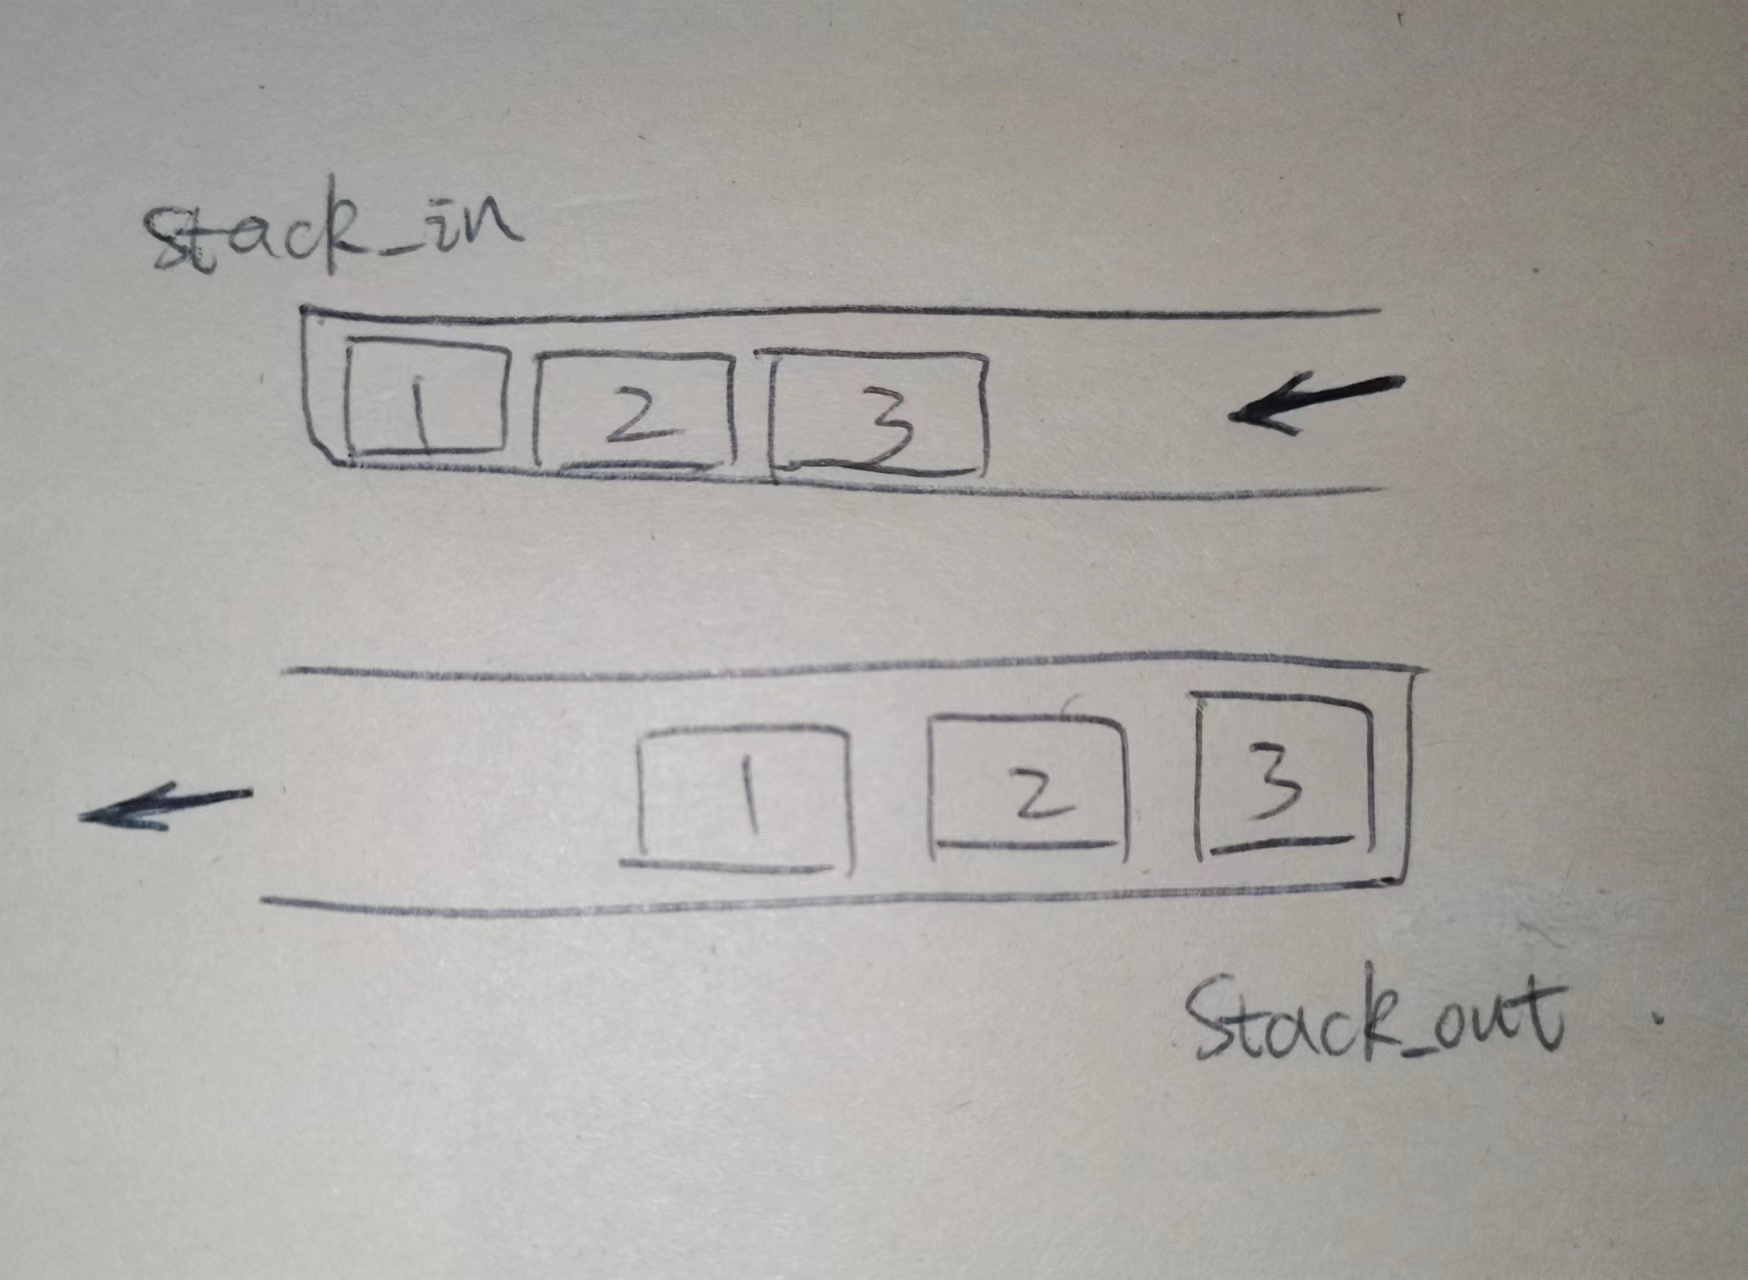 stack_in
1 2 3
1 2 3
Stack_out.